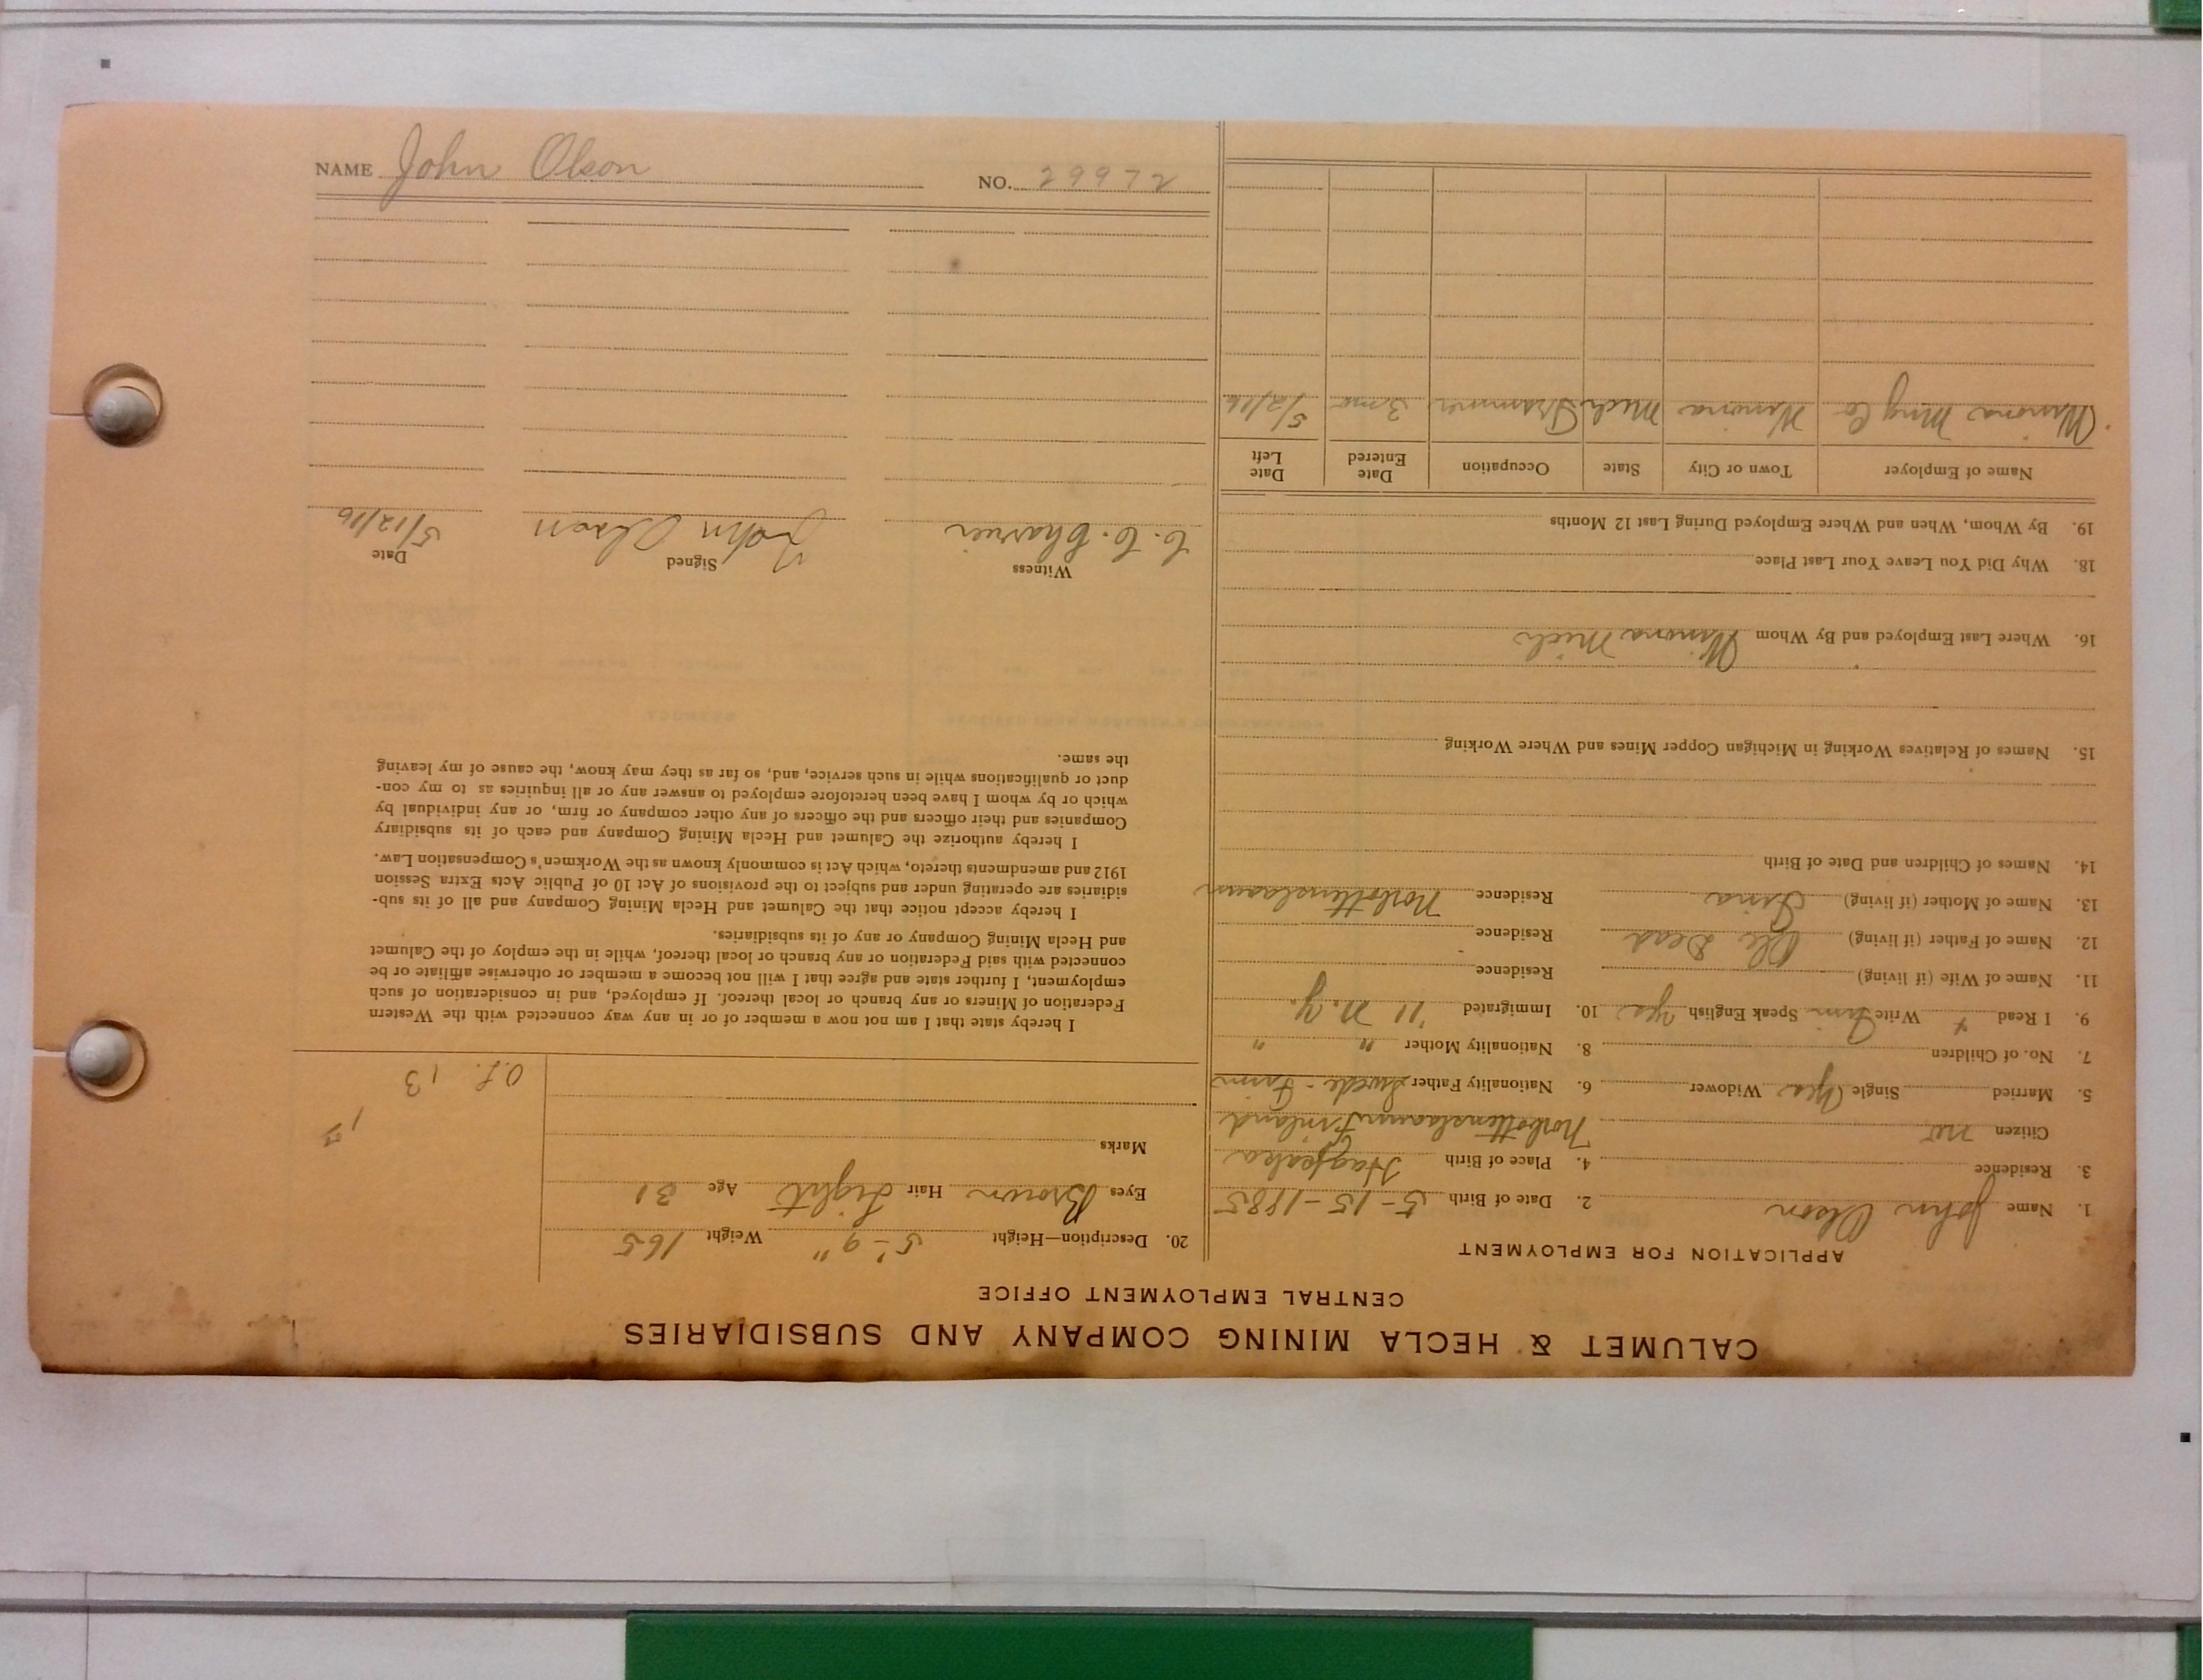 CALUMET & HECLA MINING COMPANY AND SUBSIDIARIES
CENTRAL EMPLOYMENT OFFICE
APPLICATION FOR EMPLOYMENT
1. Name John Olson 2. Date of Birth 5-15-1885
3. Residence 4. Place of Birth
Citizen no Finland
5. Married Single Yes Widower 6. Nationality Father Swede-Finn
7. No. of Children 8. Nationality Mother " "
9. I Read + Write Finn Speak English yes 10. Immigrated '11 N.Y.
11. Name of Wife (if living) Residence
12. Name of Father (if living) Ole Dead Residence
13. Name of Mother (if living) Residence
14. Names of Children and Date of Birth
15. Names of Relatives Working in Michigan Copper Mines and Where Working
16. Where Last Employed and By Whom Winona Mich
18. Why Did You Leave Your Last Place
19. By Whom, When and Where Employed During Last 12 Months
Name of Employer Town or City State Occupation Date Entered Date Left
Winona Mng Co Winona Mich Trammer 3 mo 5/2/16
20. Description—Height 5'-9" Weight 165
Eyes Brown Hair Light Age 31
Marks
O.L. 13
I hereby state that I am not now a member of or in any way connected with the Western
Federation of Miners or any branch or local thereof. If employed, and in consideration of such
employment, I further state and agree that I will not become a member or otherwise affiliate or be
connected with said Federation or any branch or local thereof, while in the employ of the Calumet
and Hecla Mining Company or any of its subsidiaries.
I hereby accept notice that the Calumet and Hecla Mining Company and all of its sub-
sidiaries are operating under and subject to the provisions of Act 10 of Public Acts Extra Session
1912 and amendments thereto, which Act is commonly known as the Workmen's Compensation Law.
I hereby authorize the Calumet and Hecla Mining Company and each of its subsidiary
Companies and their officers and the officers of any other company or firm, or any individual by
which or by whom I have been heretofore employed to answer any or all inquiries as to my con-
duct or qualifications while in such service, and, so far as they may know, the cause of my leaving
the same.
Witness Signed Date
C. C. John Olson 5/12/16
NAME John Olson NO. 29972